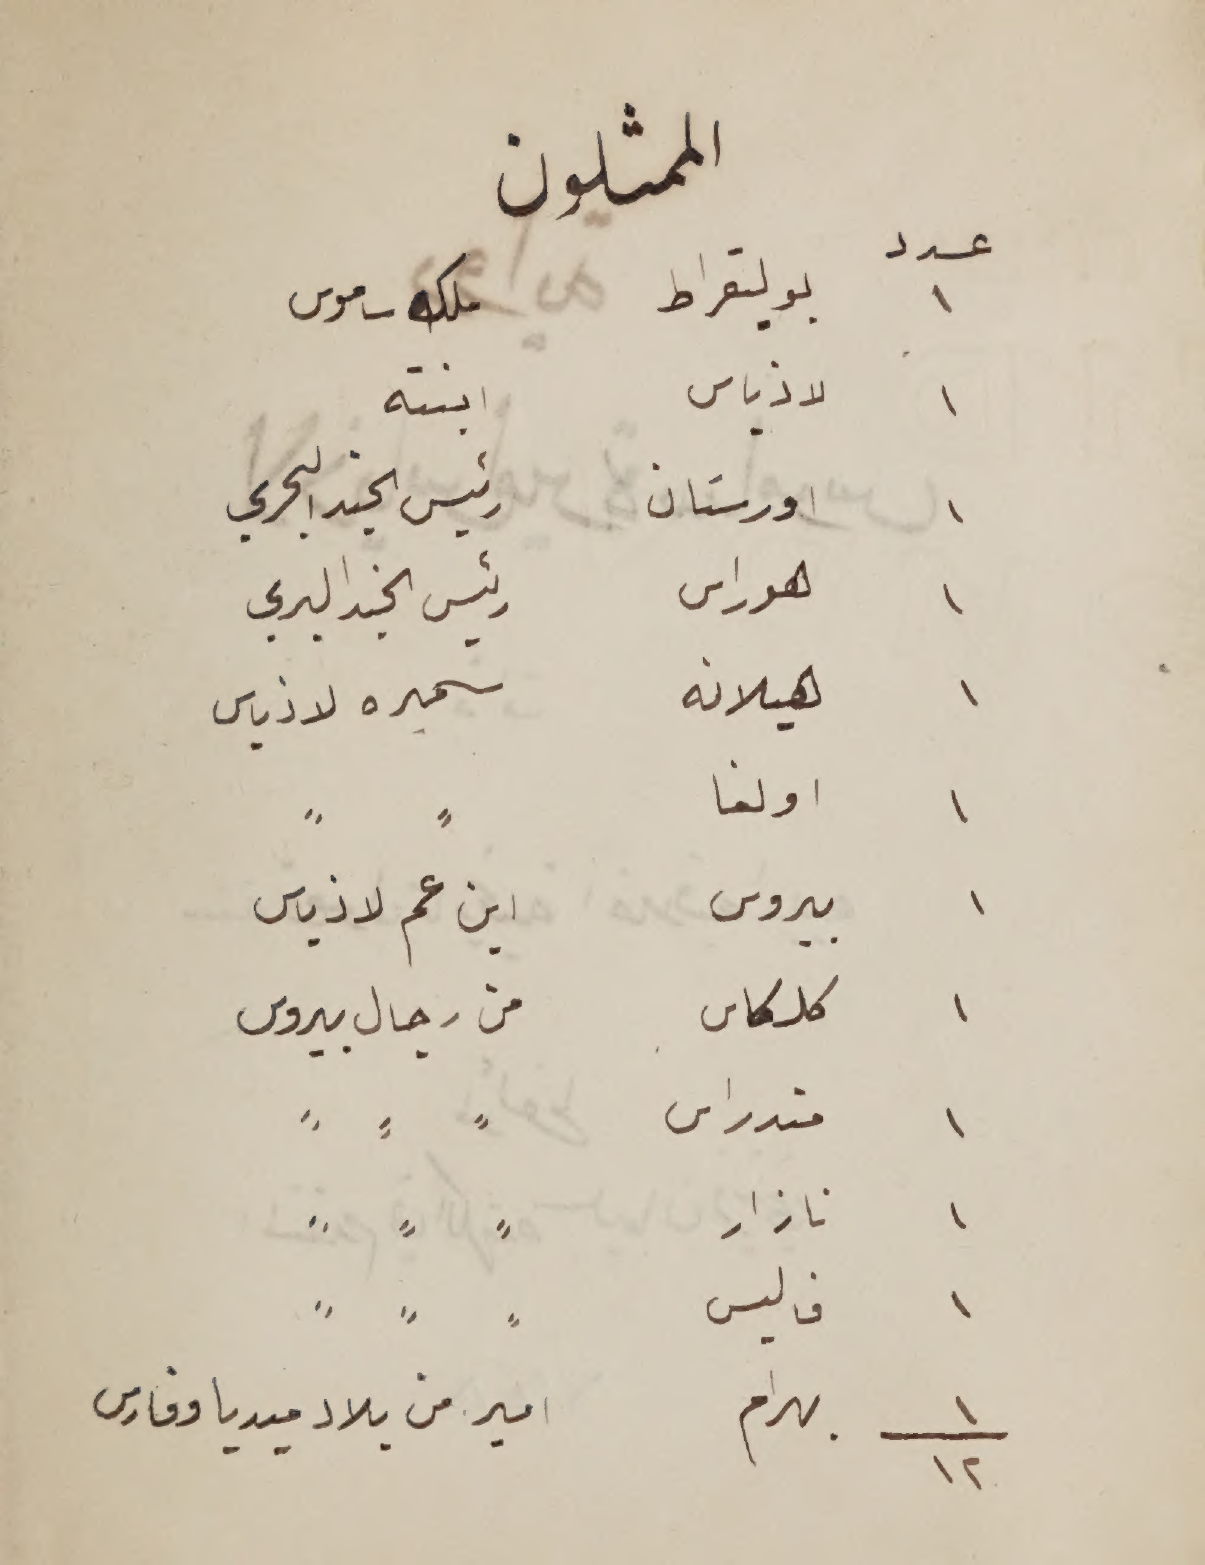 الممثلون
عدد
١ بوليتقراط ملك ساموس
١ لاذياس ابنته
١ اورستان رئيس الجند البحري
١ هوراس رئيس الجند البري
١ هيلانه سميره لاذياس
١ اولغا " "
١ بيروس ابن عم لاذياس
١ كلكاس من رجال بيروس
١ مندراس " " "
١ نازار " " "
١ فاليس " " "
١ بهرام امير من بلاد ميديا وفارس
١٢